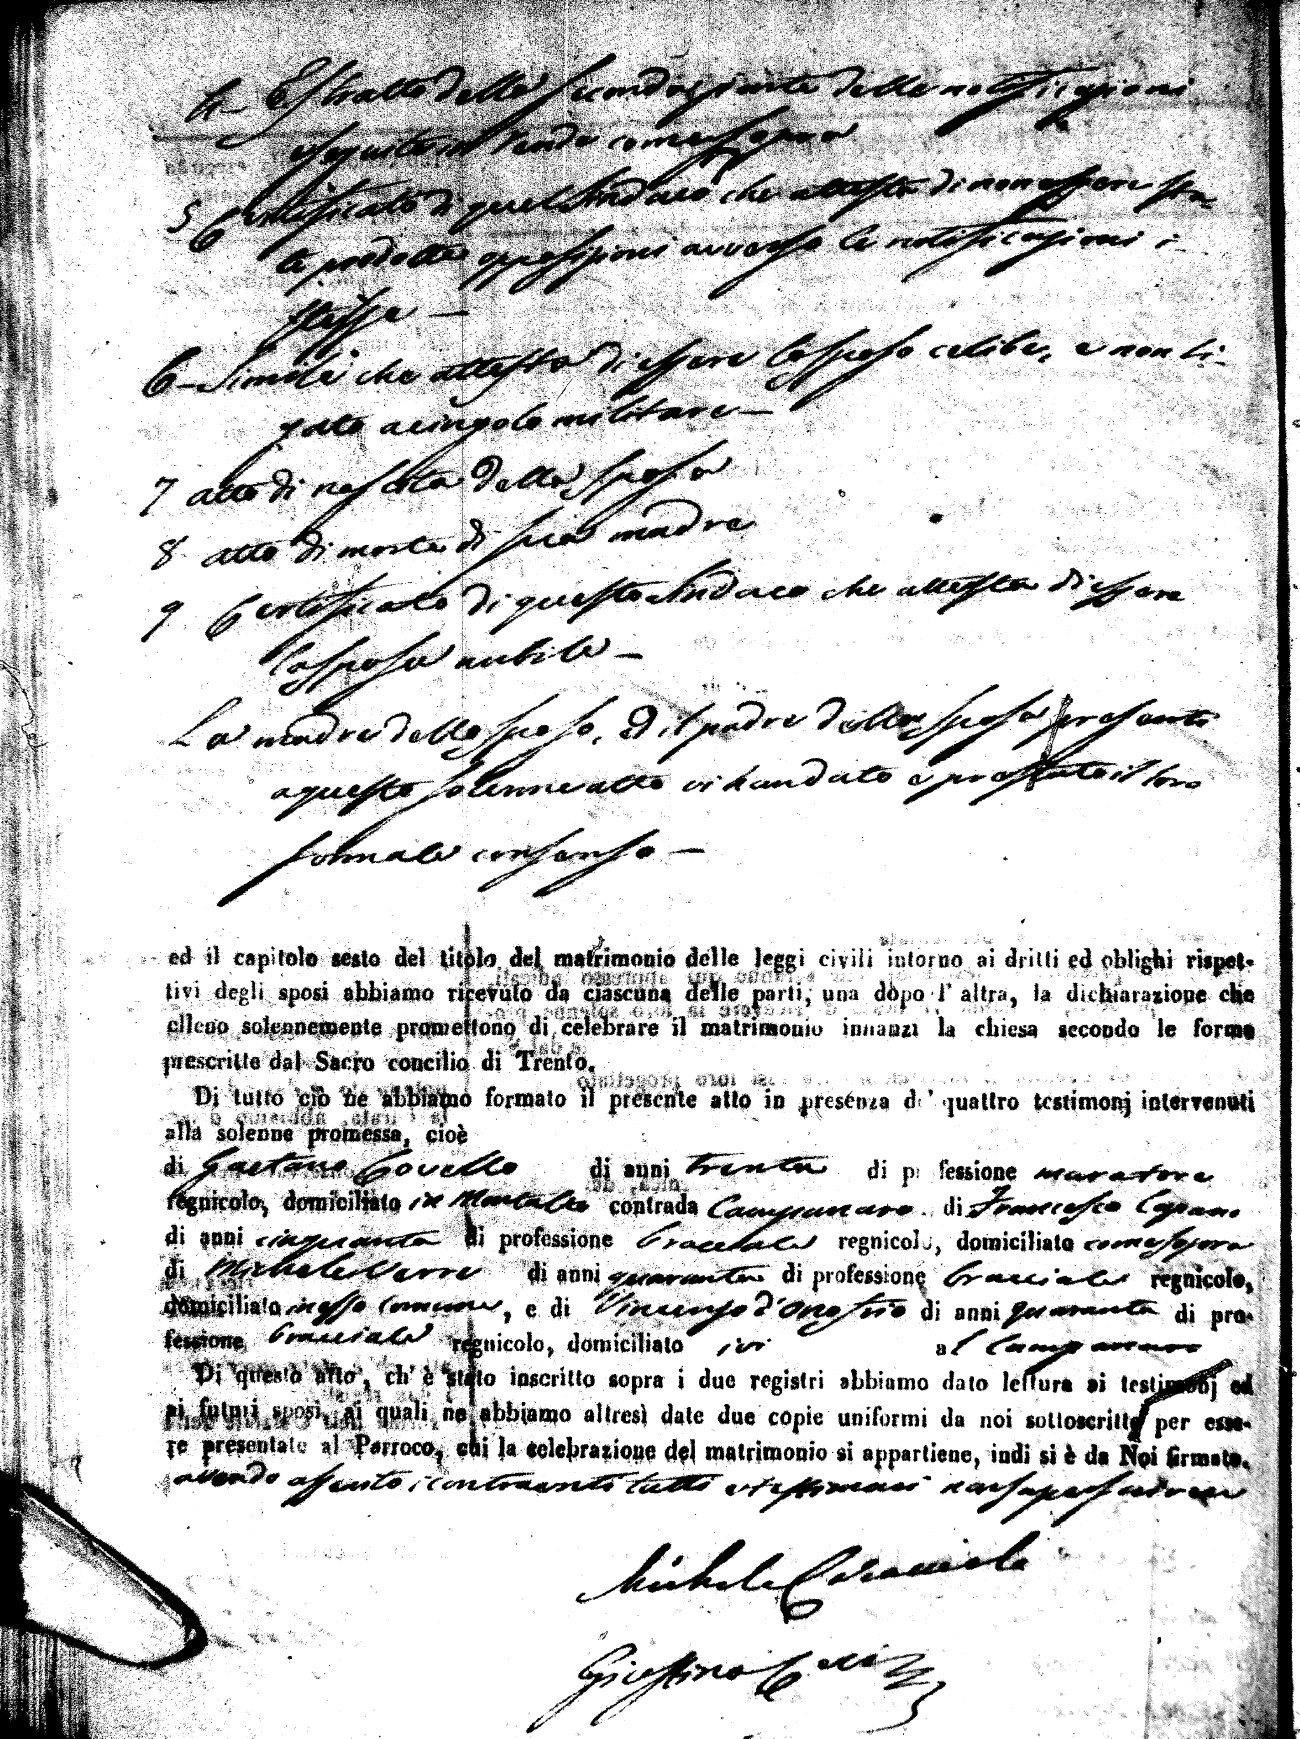 4– Estratto della seconda affissione delle notificazioni
eseguita in Rende come sopra
5 Certificato di quel Sindaco che attesta di non essere sta-
te prodotte opposizioni avverso le notificazioni i-
stesse –
6– Simile che attesta di essere lo sposo celibe, e non li-
gato a cingolo militare –
7 atto di nascita della sposa
8 atto di morte di sua madre
9 Certificato di questo Sindaco che attesta di essere
la sposa nubile –
La madre dello sposo, ed il padre della sposa presenti
a questo solenne atto vi han dato e prestato il loro
formale consenso –
ed il capitolo sesto del titolo del matrimonio delle leggi civili intorno ai dritti ed oblighi rispet-
tivi degli sposi abbiamo ricevuto da ciascuna delle parti, una dopo l' altra, la dichiarazione che
elleno solennemente promettono di celebrare il matrimonio innanzi la chiesa secondo le forme
prescritte dal Sacro concilio di Trento.
Di tutto ciò ne abbiamo formato il presente atto in presenza de' quattro testimonj intervenuti
alla solenne promessa, cioè
di Gaetano Covello di anni trenta di professione muratore
regnicolo, domiciliato in Montalto contrada Campanaro di Francesco Capano
di anni cinquanta di professione bracciale regnicolo, domiciliato come sopra
di Michele Verre di anni quaranta di professione bracciale regnicolo,
domiciliato in esso comune, e di Vincenzo d'Onofrio di anni quaranta di pro-
fessione bracciale regnicolo, domiciliato ivi al Campanaro
Di questo atto, ch' è stato inscritto sopra i due registri abbiamo dato lettura ai testimonj ed
ai futuri sposi, ai quali ne abbiamo altresì date due copie uniformi da noi sottoscritte per esse-
re presentate al Parroco, cui la celebrazione del matrimonio si appartiene, indi si è da Noi firmato,
avendo asserito i contraenti tutti e testimoni non saper scrivere
Michele Caracciolo
Giustino